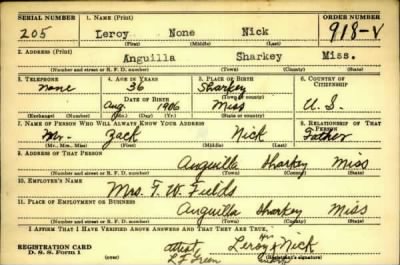 SERIAL NUMBER 1. NAME (Print) ORDER NUMBER
205 Leroy None Nick 918-V
(First) (Middle) (Last)
2. ADDRESS (Print)
Anguilla Sharkey Miss.
(Number and street or R. F. D. number) (Town) (County) (State)
3. TELEPHONE 4. AGE IN YEARS 5. PLACE OF BIRTH 6. COUNTRY OF CITIZENSHIP
None 36 Sharkey
DATE OF BIRTH (Town or county)
Aug 1906 Miss U. S.
(Exchange) (Number) (Mo.) (Day) (Yr.) (State or country)
7. NAME OF PERSON WHO WILL ALWAYS KNOW YOUR ADDRESS 8. RELATIONSHIP OF THAT PERSON
Mr. Zack Nick Father
(Mr., Mrs., Miss) (First) (Middle) (Last)
9. ADDRESS OF THAT PERSON
Anguilla Sharkey Miss
(Number and street or R. F. D. number) (Town) (County) (State)
10. EMPLOYER'S NAME
Mrs. T. W. Fields
11. PLACE OF EMPLOYMENT OR BUSINESS
Anguilla Sharkey Miss
(Number and street or R. F. D. number) (Town) (County) (State)
I AFFIRM THAT I HAVE VERIFIED ABOVE ANSWERS AND THAT THEY ARE TRUE.
REGISTRATION CARD
D. S. S. Form 1
attest Leroy x Nick
L F Green
(Registrant's signature)